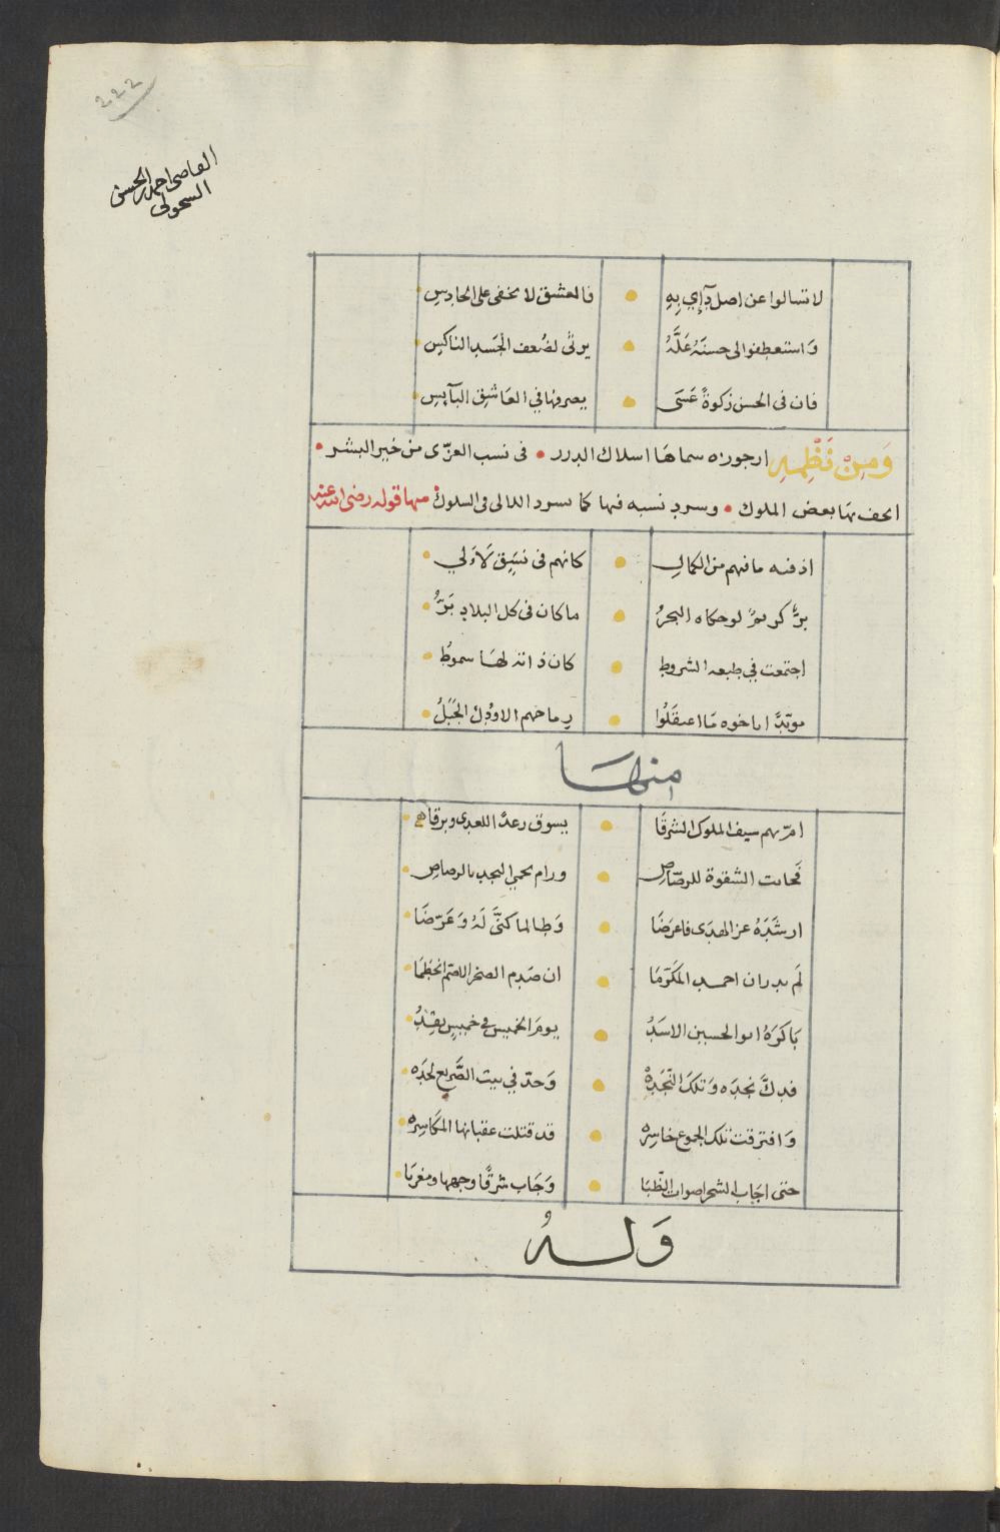 ٢٢٢
القاضي احمد بن الحسن
السحولي
لا تسالوا عن اصل دآإي بِهِ • فالعشق لا يخفى على الحادسِ
وَاستعطفوا لى حسنَهُ عَلَّهُ • يرثى لضُعف الجَسد الناكسِ
فان فى الحسن زكوةً عَسَى • يصرفها في العَاشِق البآيسِ
وَمِنْ نَظْمِهِ ارجوزه سماهَا اسلاك الدرر • فى نسب العزّى من خير البشر •
اتحف بها بعض الملوك • وسرد نسبه فيها كما تسرد اللالى فى السلوك منها قوله رضى الله عنه
كانهم فى نسَقٍ لآءَلي
برٌّ كريمٌ لو حكاه البحرُ • ما كان فى كل البلاد بَرُّ
اجتمعت في طبعه الشروط • كان ذاته لهَا سموطُ
منهَا
امّ بهم سيف الملوك الشرقَا • يسوق رعدًا للعدى وبرقا
فحانت الشقوة للرصّاص • ورام يحمي النجد بالرصاصِ
ارشَدَهُ عن الهدَى فاعرَضَا • وَطالما كنَّى لَهُ وَعَرّضَا
لَم يدر ان احمد المكَرّمَا • ان صَدم الصخر الاصَم انحَطَمَا
بَاكرَهُ ابو الحسين الاسَدُ • يومَ الخميس في خميسٍ يقدُ
فدكَّ نجدَه وَتلكَ النَّجَدِهْ • وَحدّ في بيت الضَّريع لحَدَه
وَافترقت تلك الجموع خاسِره • قد قتلت عقبانها المكَاسِره
حتى اجَاب الشحر اصوات الظّبَا • وَجَاب شرقًا وجهها ومغربَا
وَلــهُ